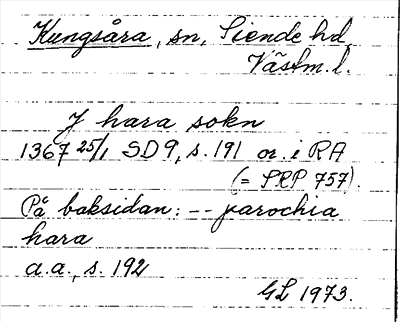 Kungsåra, sn, Siende hd
Västm.l.
J hara sokn
1367 25/1 SD 9, s. 191 or. i RA
(= SRP 757).
På baksidan: -- parochia
hara
a.a., s. 192
GL 1973.